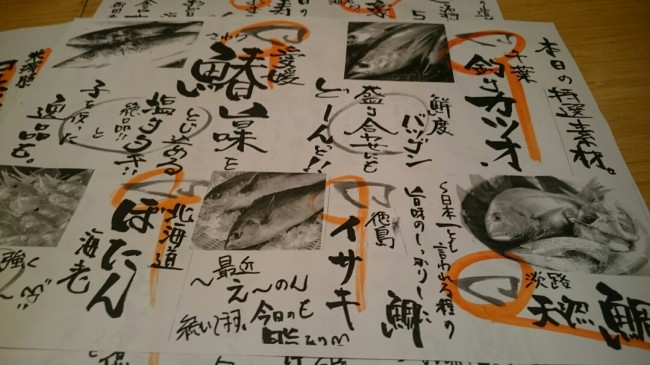 本日の特選素材。
千葉
釣りカツオ
鮮度
バツグン
盛り合せにも
どーんと!!
愛媛
さわら
鰆
旨味を
とじ込める
塩タタキ!!
絶品!!
と
子を使った
逸品を。
淡路
天然鯛
〜日本一とも
言われる程の
旨味のしっかりした
鯛
徳島
イサキ
〜最近
え〜のん
続いてます、
今日のも
北海道
ぼたん
海老
強く